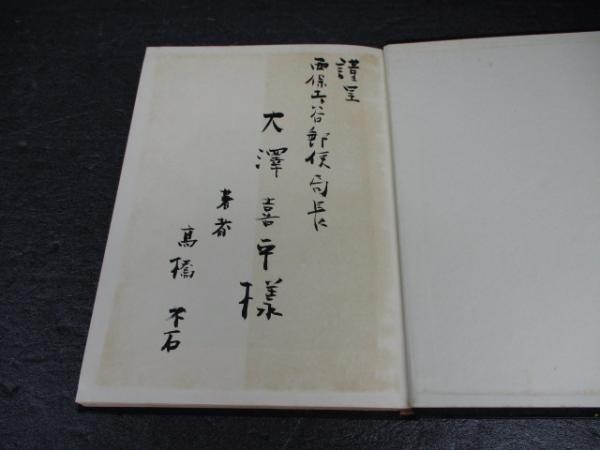 謹呈
西保土谷郵便局長
大澤喜平様
著者
高橋不石